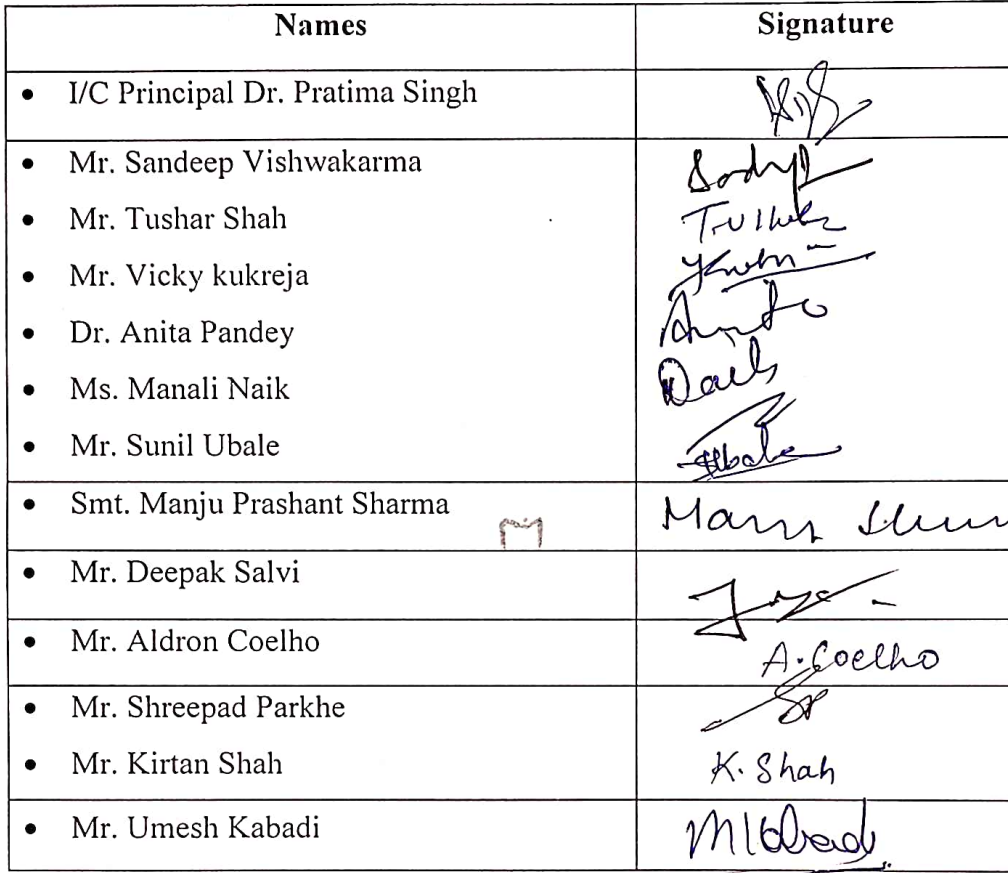 Names Signature
• I/C Principal Dr. Pratima Singh
• Mr. Sandeep Vishwakarma
• Mr. Tushar Shah
• Mr. Vicky kukreja
• Dr. Anita Pandey
• Ms. Manali Naik
• Mr. Sunil Ubale
• Smt. Manju Prashant Sharma
• Mr. Deepak Salvi
• Mr. Aldron Coelho A. Coelho
• Mr. Shreepad Parkhe
• Mr. Kirtan Shah K. Shah
• Mr. Umesh Kabadi